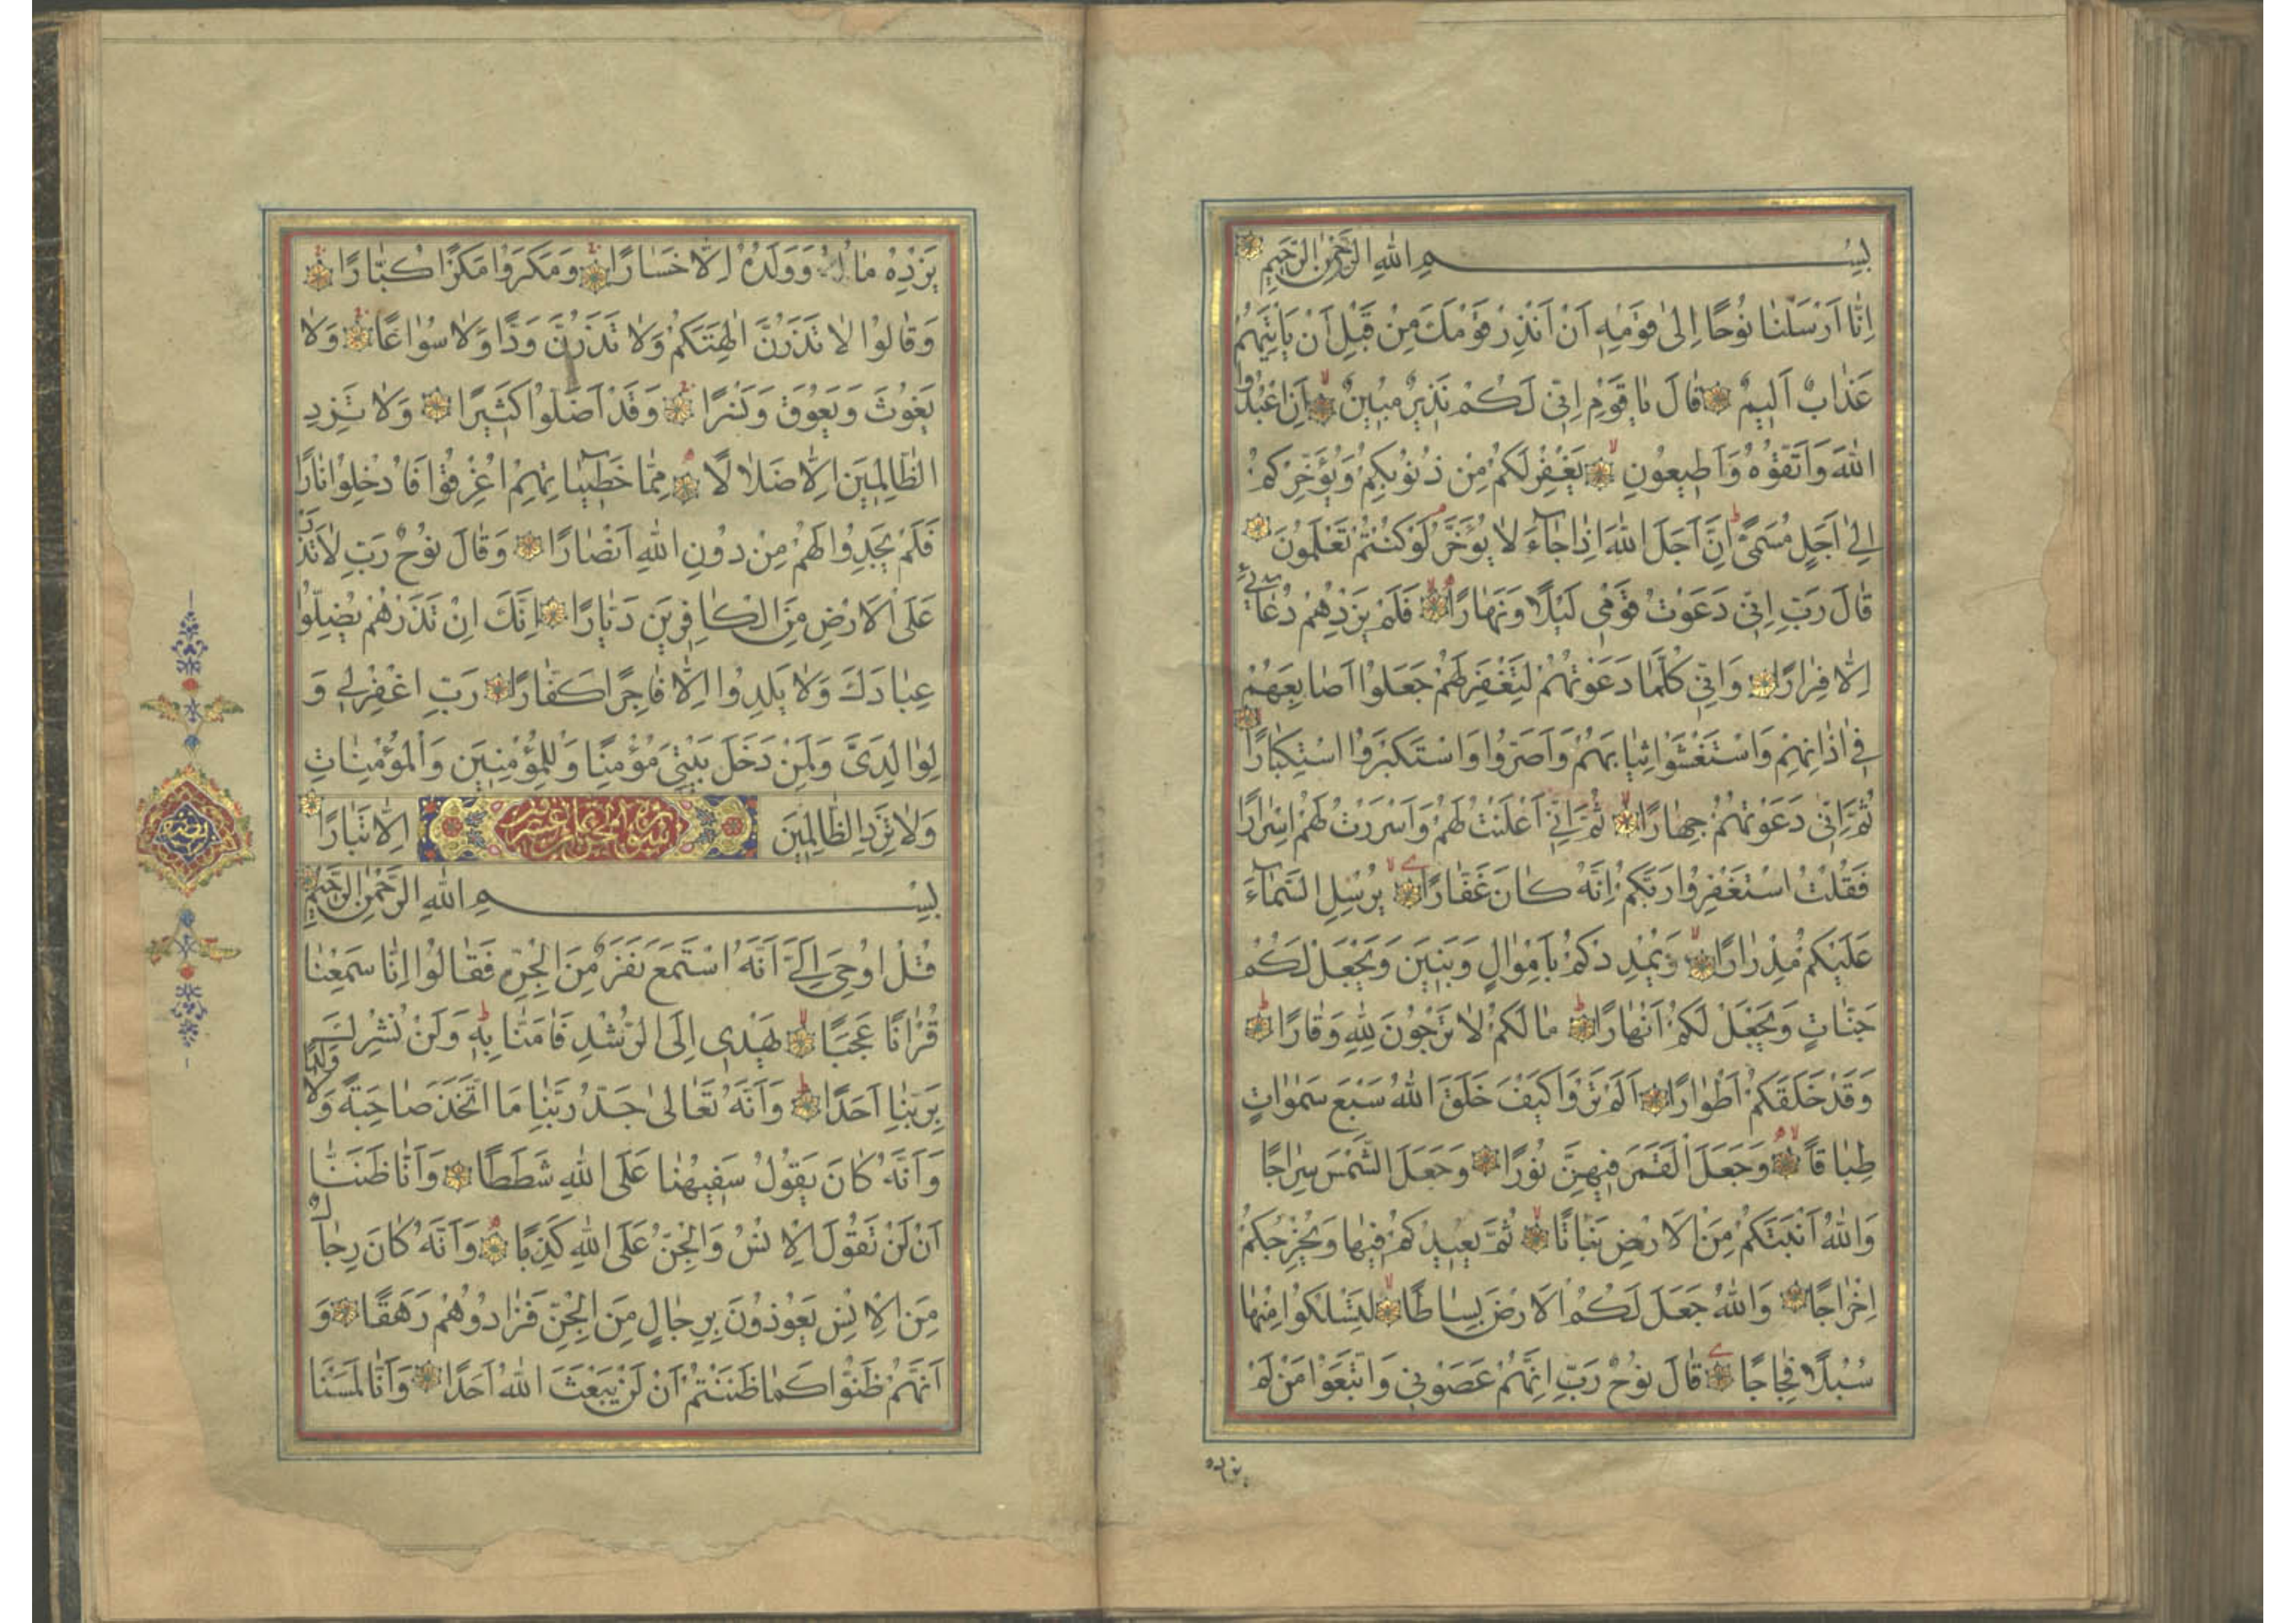 بِسْمِ اللهِ الرَّحْمٰنِ الرَّحِيمِ
اِنَّا اَرْسَلْنَا نُوحًا اِلٰى قَوْمِهِ اَنْ اَنْذِرْ قَوْمَكَ مِنْ قَبْلِ اَنْ يَاْتِيَهُمْ
عَذَابٌ اَلِيمٌ قَالَ يَا قَوْمِ اِنِّى لَكُمْ نَذِيرٌ مُبِينٌ اَنِ اعْبُدُوا
اللهَ وَاتَّقُوهُ وَاَطِيعُونِ يَغْفِرْ لَكُمْ مِنْ ذُنُوبِكُمْ وَيُؤَخِّرْكُمْ
اِلٰى اَجَلٍ مُسَمًّى اِنَّ اَجَلَ اللهِ اِذَا جَآءَ لَا يُؤَخَّرُ لَوْ كُنْتُمْ تَعْلَمُونَ
قَالَ رَبِّ اِنِّى دَعَوْتُ قَوْمِى لَيْلًا وَنَهَارًا فَلَمْ يَزِدْهُمْ دُعَآئِى
اِلَّا فِرَارًا وَاِنِّى كُلَّمَا دَعَوْتُهُمْ لِتَغْفِرَ لَهُمْ جَعَلُوا اَصَابِعَهُمْ
فِى اٰذَانِهِمْ وَاسْتَغْشَوْا ثِيَابَهُمْ وَاَصَرُّوا وَاسْتَكْبَرُوا اسْتِكْبَارًا
ثُمَّ اِنِّى دَعَوْتُهُمْ جِهَارًا ثُمَّ اِنِّى اَعْلَنْتُ لَهُمْ وَاَسْرَرْتُ لَهُمْ اِسْرَارًا
فَقُلْتُ اسْتَغْفِرُوا رَبَّكُمْ اِنَّهُ كَانَ غَفَّارًا يُرْسِلِ السَّمَآءَ
عَلَيْكُمْ مِدْرَارًا وَيُمْدِدْكُمْ بِاَمْوَالٍ وَبَنِينَ وَيَجْعَلْ لَكُمْ
جَنَّاتٍ وَيَجْعَلْ لَكُمْ اَنْهَارًا مَا لَكُمْ لَا تَرْجُونَ لِلّٰهِ وَقَارًا
وَقَدْ خَلَقَكُمْ اَطْوَارًا اَلَمْ تَرَوْا كَيْفَ خَلَقَ اللهُ سَبْعَ سَمٰوَاتٍ
طِبَاقًا وَجَعَلَ الْقَمَرَ فِيهِنَّ نُورًا وَجَعَلَ الشَّمْسَ سِرَاجًا
وَاللهُ اَنْبَتَكُمْ مِنَ الْاَرْضِ نَبَاتًا ثُمَّ يُعِيدُكُمْ فِيهَا وَيُخْرِجُكُمْ
اِخْرَاجًا وَاللهُ جَعَلَ لَكُمُ الْاَرْضَ بِسَاطًا لِتَسْلُكُوا مِنْهَا
سُبُلًا فِجَاجًا قَالَ نُوحٌ رَبِّ اِنَّهُمْ عَصَوْنِى وَاتَّبَعُوا مَنْ لَمْ
يزده
يَزِدْهُ مَالُهُ وَوَلَدُهُ اِلَّا خَسَارًا وَمَكَرُوا مَكْرًا كُبَّارًا
وَقَالُوا لَا تَذَرُنَّ اٰلِهَتَكُمْ وَلَا تَذَرُنَّ وَدًّا وَلَا سُوَاعًا وَلَا
يَغُوثَ وَيَعُوقَ وَنَسْرًا وَقَدْ اَضَلُّوا كَثِيرًا وَلَا تَزِدِ
الظَّالِمِينَ اِلَّا ضَلَالًا مِمَّا خَطِيٓئَاتِهِمْ اُغْرِقُوا فَاُدْخِلُوا نَارًا
فَلَمْ يَجِدُوا لَهُمْ مِنْ دُونِ اللهِ اَنْصَارًا وَقَالَ نُوحٌ رَبِّ لَا تَذَرْ
عَلَى الْاَرْضِ مِنَ الْكَافِرِينَ دَيَّارًا اِنَّكَ اِنْ تَذَرْهُمْ يُضِلُّوا
عِبَادَكَ وَلَا يَلِدُوا اِلَّا فَاجِرًا كَفَّارًا رَبِّ اغْفِرْ لِى وَ
لِوَالِدَىَّ وَلِمَنْ دَخَلَ بَيْتِىَ مُؤْمِنًا وَلِلْمُؤْمِنِينَ وَالْمُؤْمِنَاتِ
وَلَا تَزِدِ الظَّالِمِينَ اِلَّا تَبَارًا
بِسْمِ اللهِ الرَّحْمٰنِ الرَّحِيمِ
قُلْ اُوحِىَ اِلَىَّ اَنَّهُ اسْتَمَعَ نَفَرٌ مِنَ الْجِنِّ فَقَالُوا اِنَّا سَمِعْنَا
قُرْاٰنًا عَجَبًا يَهْدِى اِلَى الرُّشْدِ فَاٰمَنَّا بِهِ وَلَنْ نُشْرِكَ
بِرَبِّنَا اَحَدًا وَاَنَّهُ تَعَالٰى جَدُّ رَبِّنَا مَا اتَّخَذَ صَاحِبَةً وَلَا وَلَدًا
وَاَنَّهُ كَانَ يَقُولُ سَفِيهُنَا عَلَى اللهِ شَطَطًا وَاَنَّا ظَنَنَّا
اَنْ لَنْ تَقُولَ الْاِنْسُ وَالْجِنُّ عَلَى اللهِ كَذِبًا وَاَنَّهُ كَانَ رِجَالٌ
مِنَ الْاِنْسِ يَعُوذُونَ بِرِجَالٍ مِنَ الْجِنِّ فَزَادُوهُمْ رَهَقًا وَ
اَنَّهُمْ ظَنُّوا كَمَا ظَنَنْتُمْ اَنْ لَنْ يَبْعَثَ اللهُ اَحَدًا وَاَنَّا لَمَسْنَا